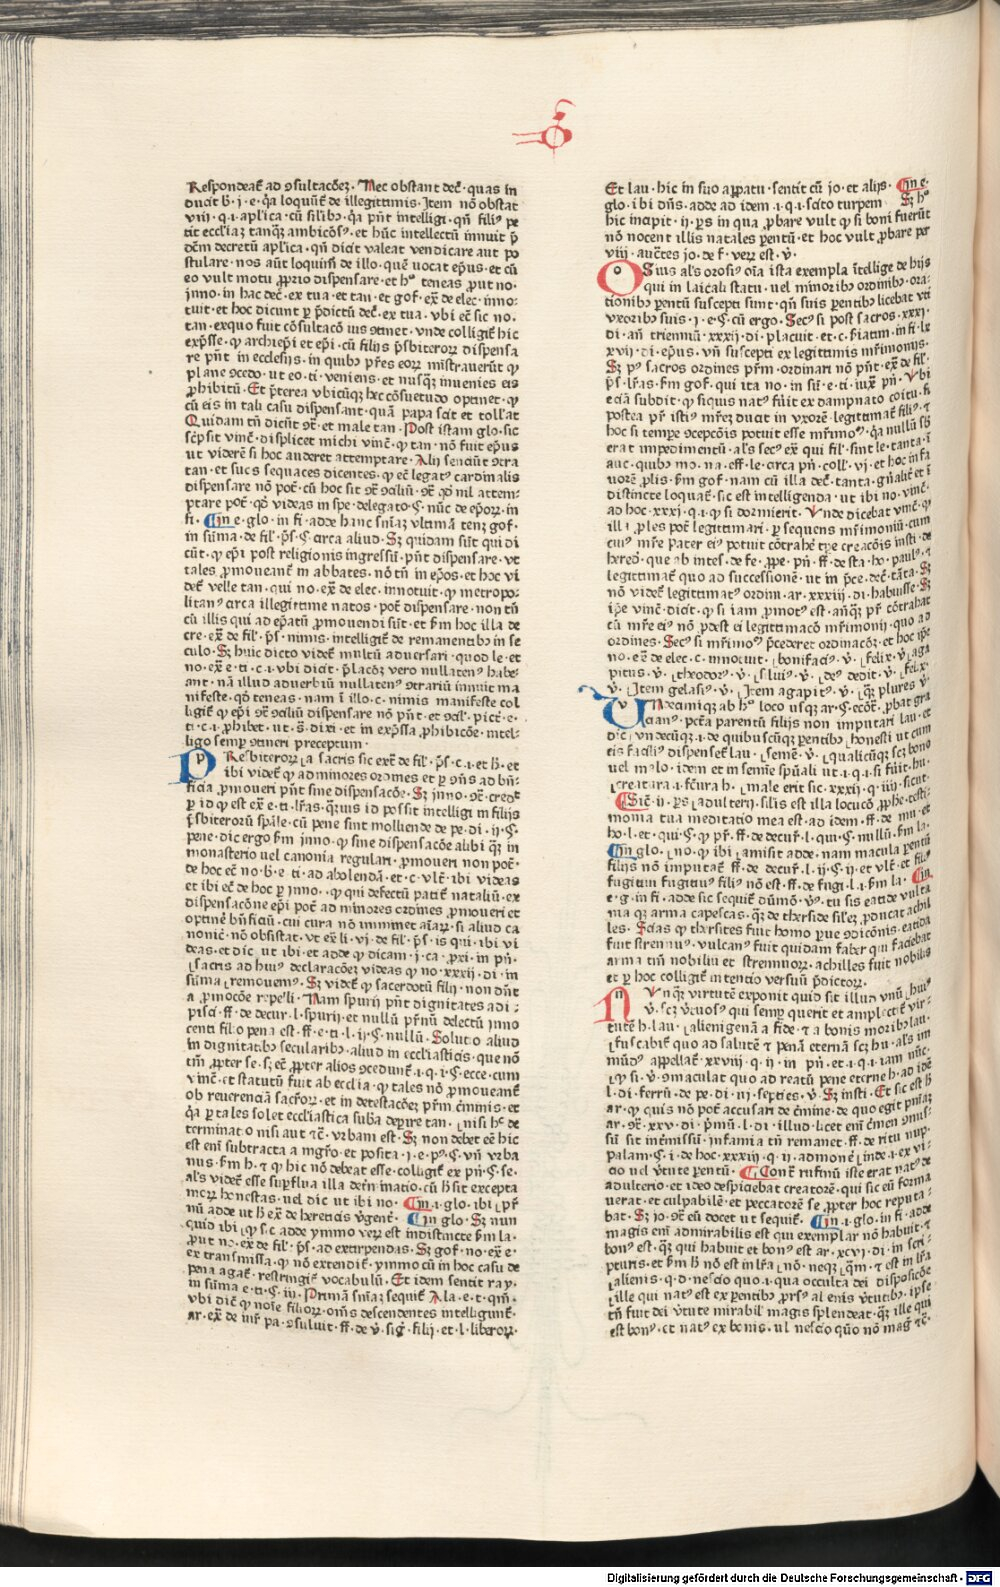 Respondeat̄ ad ꝯsultacōeʒ · Nec obstant dec̄ · quas in
ducit b̄ · j · e · q̄a loquūt̄ de illegittimis · Item nō obstat
viij · q · i · apl'ica · cū filijs
decretū apl'ica · qn̄ dicit valeat vendicare aut po
stulare · nos aūt loquim̄ de illo · quē vocat ep̄us · et cū
eo vult motu ꝓprio dispensare · et hº teneas ꝓut no ·
jnno · in hac dec̄ · ex tua · et tan · et gof · ex̄ de elec · inno ·
tuit · et hoc dicunt ꝑ p̄dictū dec̄ · ex tua · vbi eē sic no ·
tan · exquo fuit cōsultacō · vnde colligit̄ hic
exp̄sse · ꝙ archiep̄i et ep̄i · cū filijs p̄sbiteroꝝ dispensa
re pn̄t in ecclesijs · in quibꝫ p̄res eoꝝ mīstrauerūt ꝙ
plane ꝯcedo · ut eo · ti · veniens · et nusq̄ʒ inuenies eis
ꝓhibitū · Et p̄terea vbicūqʒ hec cōsuetudo optinet · ꝙ
cū eis in tali casu dispensant · quā papa scit et tollˉat
Quidam tn̄ dicūt ꝯͬ · et male tan · Post istam glo · sic
sc̄psit vinc̄ · displicet michi vinc̄ · ꝙ tan · nō fuit ep̄us
ut viderē si hoc auderet attemptare · Alij senciūt ꝯtra
tan · et sucs sequaces dicentes · ꝙ eē legatꝰ cardinalis
dispensare nō pot̄ · cū hoc sit
ptare pot̄ · qd̄ videas in spe · delegato · § · nūc de ep̄oꝝ · in
fi · In e · glo · in fi · adde hanc sn̄iaʒ vltimā · tenʒ gof ·
in sūma · de fil · p̄s · § · circa aliud · Sʒ quidam sūt qui di
cūt · ꝙ ep̄i post religionis ingressū · pn̄t dispensare · vt
tales ꝓmoueant̄ in abbates · nō tn̄ in ep̄os · et hoc vi
det̄ velle tan · qui no · ex̄ de elec · innotuit · ꝙ metropo ·
litanꝰ circa illegittime natos · pot̄ dispensare · non tn̄
cū illis qui ad ep̄atū ꝓmouendi sūt · et s̄m hoc illa de
cre · ex̄ de fil · p̄s · nimis · intelligit̄ de remanentibꝫ in se
culo · Sʒ huic dicto videt̄ multū aduersari · quod le · et
no · ex̄ e · ti · c · i · vbi dicit · p̄lacōʒ vero nullatenꝰ habe ·
ant · nā illud aduerbiū nullatenꝰ ꝯtrariū innuit ma
nifeste · qd̄ teneas · nam ī illo · c · nimis manifeste col
ti · c · i · ꝓhibet · ut s̄ · dixi · et in exp̄ssa ꝓhibicōe · intel ·
ligo semꝑ ꝯtineri preceptum ·
PResbiteroꝝ · a sacris sic ext̄ de fil · p̄s · c · i · et b̄ · et
ibi videt̄ ꝙ ad minores ordines et ꝑ ꝯn̄s ad bn̄ ·
ficia ꝓmoueri pn̄t sine dispensacōe · Sʒ jnno · ꝯͬ · credit̄
ꝑ id ꝙ est ex̄ e · ti · lr̄as · q̄ʒuis id possit intelligi in filijs
p̄sbiterorū spāle · cū pene sint molliende de pe · di · ij · § ·
pene · dic ergo s̄m jnno · ꝙ sine dispensacōe alibi q̄ʒ in
monasterio uel canonia regulari · ꝓmoueri non pot̄ ·
de hoc eē no · b̄ · e · ti · ad abolendā · et · c · vlt̄ · ibi videas
et ibi eē de hoc ꝑ jnno · ꝙ qui defectū patit̄ nataliū · ex
dispensacōne ep̄i pot̄ ad minores ordines ꝓmoueri et
optinē bn̄ficiū · cui cura nō imminet aīaꝝ · si aliud ca
nonic̄ · nō obsistat · vt ex̄ li · vj · de fil · p̄s · is qui · ibi vi
deas · et dic ut ibi · et adde ꝙ dicam · j · ca · ꝓxi · in pn̄ ·
sacris ad huiꝰ declaracōeʒ videas ꝙ no · xxxij · di · in
sūma remouemꝰ · Sʒ videt̄ ꝙ sacerdotū filij · non dn̄t
a ꝓmocōe repelli · Nam spurij pn̄t dignitates adi ·
pisci · ff · de decur · l · spurij · et nullū pr̄nū delectū jnno
centi filio pena est · ff · e · ti · l · ij · § · nullū · Solutio aliud
in dignitatibꝫ secularibꝫ · aliud in eccl̄iasticis · que nō
tm̄ ꝓpter se · sʒ eē ꝓpter alios ꝯcedunt̄ · i · q · i · § · ecce · cum
vinc̄ · et statutū fuit ab ecclīa · ꝙ tales nō ꝓmoueant̄
ob reuerenciā sacroꝝ · et in detestacōeʒ pr̄m cīminis · et
q̄a ꝑ tales solet eccl̄iastica sub̄a deꝑire tan · nisi hº de
terminatō nisi aut ⁊c̄ · vrbani est · Sʒ non debet eē hic
est enī subtracta a mgr̄o · et posita · j · e · pº · § · vn̄ vrba
nus · s̄m h · ⁊ ꝙ hic nō debeat esse · colligit̄ ex pn̄ · § · se ·
als̄ videt̄ esse suꝑflua illa det̄minatio · cū b̄ sit excepta
moꝝ honestas · vel dic ut ibi no · In · i · glo · ibi pr̄
nū adde ut b̄ ex̄ de hereticis v̄gent̄ · In glo · Sʒ nun
quid ibi ꝙ s · c · adde ymmo veꝝ est indistincte s̄m la ·
ꝓut no · ex̄ de fil · p̄s · ad extirpendas · Sʒ gof · no · ex̄ e ·
ex transmissa · ꝙ nō extendit̄ · ymmo cū in hoc casu de
pena agat̄ · restringit̄ vocabulū · Et idem sentit ray ·
in sūma e · ti · § · iij · Primā sn̄iaʒ sequit̄ Ala · e · t · qm̄ ·
vbi dic̄ ꝙ noīe filioꝝ · om̄s descendentes intelligunt̄ ·
ar · ex̄ de iur̄ pa · ꝯsuluit · ff · de v̄ · siḡ · filij · et · l · liberoꝝ ·
Et lau · hic in suo apꝑatu · sentit cū jo · et alijs · In e ·
glo · ibi dn̄s · adde ad idem · i · q · i · scito turpem Sʒ hº
hic incipit · ij · ꝑs in qua ꝓbare vult ꝙ si boni fuerūt
nō nocent illis natales ꝑentū · et hoc vult ꝓbare ꝑ
viij · auc̄tes jo · de f · veꝝ est · v̄ ·
OSius als̄ orosiꝰ oīa ista exempla ītellige de hijs
qui in laicali statu · vel minoribꝫ ordinibꝫ · ora ·
tionibꝫ ꝑentū suscepti sunt · qn̄ suis ꝑentibꝫ licebat vti
vxoribꝫ suis · j · e · § · cū ergo · Secꝰ si post sacros · xxxj ·
di · an̄ triennū · xxxij · di · placuit · et · c · s̄iatim · in fi · lx
xvij · di · ep̄us · vn̄ suscepti ex legittimis mr̄imonijs ·
Sʒ pꝰ sacros ordines pr̄m · ordinari nō pn̄t · ex̄ de fil ·
p̄s · lr̄as · s̄m gof · qui ita no · in sū · e · ti · iux̄ pn̄ · Vbi
eciā subdit · ꝙ siquis natꝰ fūit ex dampnato coitu · si
postea pr̄ istiꝰ mr̄eʒ ducat in vxorē · legitimat̄ filiꝰ · ⁊
hoc si tempe ꝯcepcōis potuit esse mr̄imoꝰ · q̄a nullū sb̄
erat impedimentū · als̄ secꝰ ex̄ qui fil · sint le · tanta · ī
auc · quibꝫ mo · na · eff · le · circa pn̄ · coll · vj · et hoc in fa
uorē ꝓlis · s̄m gof · nam cū illa dec̄ · tanta · gn̄alit̄ et ī
distincte loquat̄ · sic est intelligenda · ut ibi no · vinc̄ ·
ad hoc · xxxj · q · i · ꝙ si dormierit · Vnde dicebat vinc̄ · ꝙ
illi ꝓles pot̄ legitimari · ꝑ sequens mr̄imoniū · cum
cuiꝰ mr̄e pater eiꝰ potuit cōtrahē tp̄e creacōis insti · de
hered̄ · que ab intes · de fe · ꝓpe · pn̄ · ff · de sta · ho · paulꝰ · ⁊
legittimat̄ quo ad successiōnē · ut in p̄ce · dec̄ · tāta · Sʒ
nō videt̄ legittimatꝰ ordin · ar · xxxiij · di · habuisse · Sʒ
ip̄e vinc̄ · dicit · ꝙ si iam ꝓmotꝰ est · anq̄ʒ pr̄ cōtrahat
cū mr̄e eiꝰ nō pdest ei legittimacō mr̄imonij · quo ad
ordines · Secꝰ si mr̄imoꝰ p̄cederet ordinacōeʒ · et hoc ip̄e
no · ex̄ de elec · c · innotuit · bonifaciꝰ · v̄ · felix · v̄ · aga
pitus · v̄ · theodorꝰ · v̄ · siluiꝰ · v̄ · deꝰ dedit · v̄ · felix ·
v̄ · Item gelasiꝰ · v̄ · Item agapitꝰ · v̄ · q̄ʒ plures v̄ ·
VNxamiqʒ ab hº loco usqʒ ar · § · ecōt̄ · ꝓbat gra
cianꝰ · pctā parentū filijs non imputari lau · et
dic vndecūqʒ · i · de quibuscūqʒ ꝑentibꝫ honesti ut cum
eis faciliꝰ dispenset̄ lau · semē · v̄ · qualicūqʒ scʒ bono
uel malo · idem et in semīe spūali ut · i · q · i · si fūit · hu ·
creatura · fc̄ura h · male erit sic · xxxij · q · iiij · sicut ·
Sic̄ · ij · ꝑs adulterij · silis est illa locucō ꝓphe · testi ·
monia tua meditatio mea est · ad idem · ff · de mu · et
ho · l · et · qui · § · ꝙ pr̄ · ff · de decur̄ · l · qui · § · nullū · s̄m la ·
In glo · no · ꝙ ibi amisit adde · nam macula ꝑentū
filijs nō imputat̄ ff · de decur̄ · l · ij · § · ij · et vlt̄ · et filiꝰ
fugitiui fugitiuꝰ filiꝰ nō est · ff · de fugi · l · i · s̄m la · In
e · g · in fi · adde sic sequit̄ dūmō · vꝰ · tu sis eatide vulta
ma qʒ arma capescas · q̄ʒ de therside sileʒ ꝓducat achil
les · Scias ꝙ thersites fuit homo ꝑue ꝯdicōnis · eatida
fuit strenuꝰ · vulcanꝰ fuit quidam faber qui faciebat
arma tm̄ nobiliū et strennuoꝝ · achilles fuit nobilis
et ꝑ hoc colligit̄ intencio versuū p̄dictoꝝ ·
NVnqʒ virtutē exponit quid sit illud vnū huiꝰ
v̄ · scʒ v̄tuosꝰ qui semꝑ querit et amplectit̄ vir ·
tutē h · lau · alienigenā a fide · ⁊ a bonis moribꝫ lau ·
fuscabit̄ quo ad salutē ⁊ penā eternā scʒ hu · als̄ im
mūdꝰ appellat̄ · xxviij · q · ij · in pn̄ · et · i · q · i · iam nūc ·
ꝙ si · v̄ · ꝯmaculat quo ad reatū pene eterne h · ad idē
l · di · ferrū · de pe · di · iij · septies · v̄ · Sʒ insti · Et sic est b̄
ar · ꝙ quis nō pot̄ accusari de c̄mine · de quo egit pn̄iaʒ
ar · ꝯͬ · xxv · di · p̄mū · l · di · illud · licet enī c̄men
sū sit int̄missū · infamia tn̄ remanet · ff · de ritu nup ·
palam · § · i · de hoc · xxxiij · q · ij · admonē · inde · i · ex vi ·
cio uel v̄tute ꝑentū · Con̄ rufinū iste erat natꝰ de
adulterio · et ideo despiciebat creatorē · qui sic eū forma
uerat · et culpabilē · et peccatorē se ꝓpter hoc reputa ·
bat · Sʒ jo · ꝯͬ eū docet ut sequit̄ · In · i · glo · in fi · adde
magis enī admirabilis est qui exemplar nō habuit · ⁊
bonꝰ est · q̄ʒ qui habuit et bonꝰ est ar · xcvj · di · in scri ·
pturis · et s̄m b̄ nō est in lr̄a nō · neqʒ q̄m · ⁊ est in lr̄a
alienis · q · d · nescio quo · i · qua occulta dei disposicōe
ille qui natꝰ est ex ꝑentibꝫ ꝓrsꝰ alienis v̄tutibꝫ · ipse
tn̄ fuit dei v̄tute mirabilˉ magis splendeat · q̄ʒ ille qui
est bonꝰ · et natꝰ ex bonis · ul nescio quō nō maḡ ⁊c̄ ·
Digitalisierung gefördert durch die Deutsche Forschungsgemeinschaft - DFG